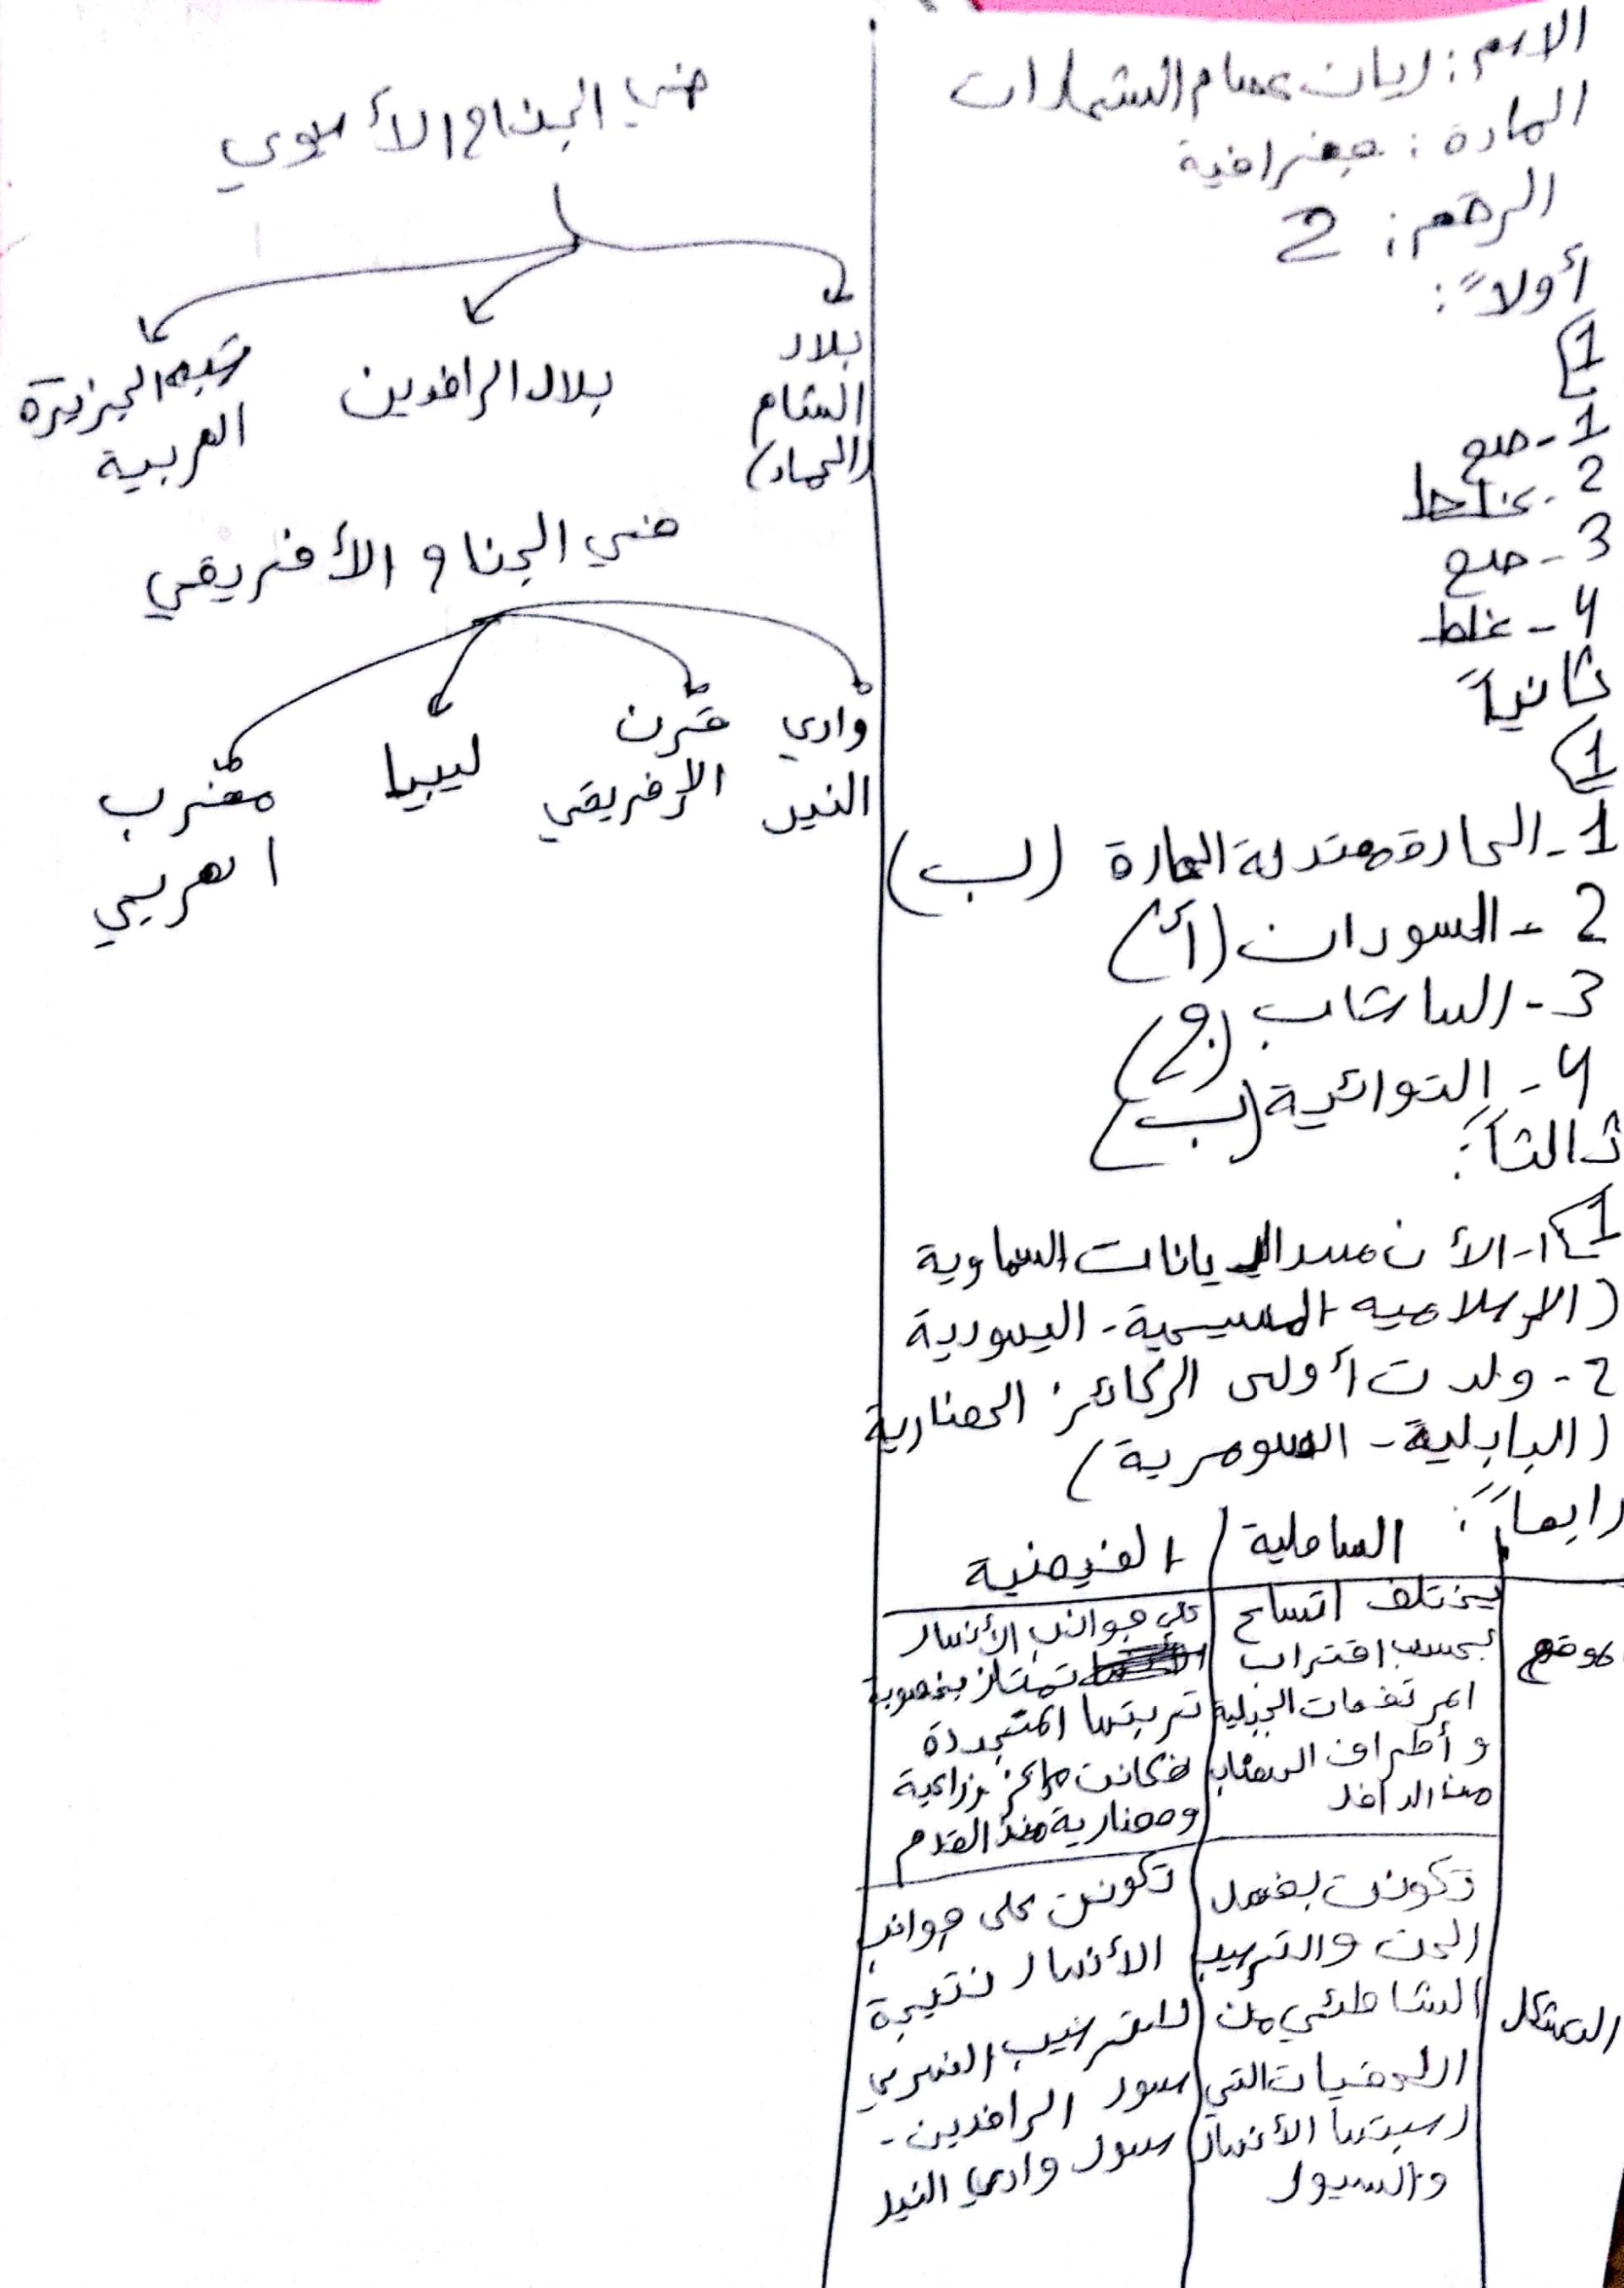 الاسم: ريان عصام الشمارات
المادة: جغرافية
الرقم: 2
أولاً:
1
1- صح
2- غلط
3- صح
4- غلط
ثانياً
1
1- الحارة معتدلة الحارة (ب)
2- السودان (أ)
3- الساشاب (ج)
4- التوائية (ب)
ثالثاً:
1) 1- الأن مهد الديانات السماوية
(الإسلاميه المسيحية - اليهودية
2- ولدت أولى الركائز الحضارية
(البابلية - السومرية)
رابعاً:
الساحلية
الفيضية
موقع
يختلف اتساع
بحسب اقتراب
المرتفعات الجبلية
وأطراف الهضاب
من الداخل
على جوانب الأنهار
تمتاز بخصوبة
تربتها المتجددة
فكانت مراكز زراعية
وحضارية منذ القدم
التشكل
تكونت بفعل
الحت والترسيب
الشاطئي من
اللحقيات التي
رسبتها الأنهار
والسيول
تكونت على جوانب
الأنهار نتيجة
للترسيب النهري
سهول الرافدين -
سهول وادي النيل
في الجناح الأسيوي
بلاد
الشام
(الحماد)
بلاد الرافدين
شبه الجزيرة
العربية
في الجناح الأفريقي
وادي
النيل
قرن
الإفريقي
ليبيا
مغرب
العربي